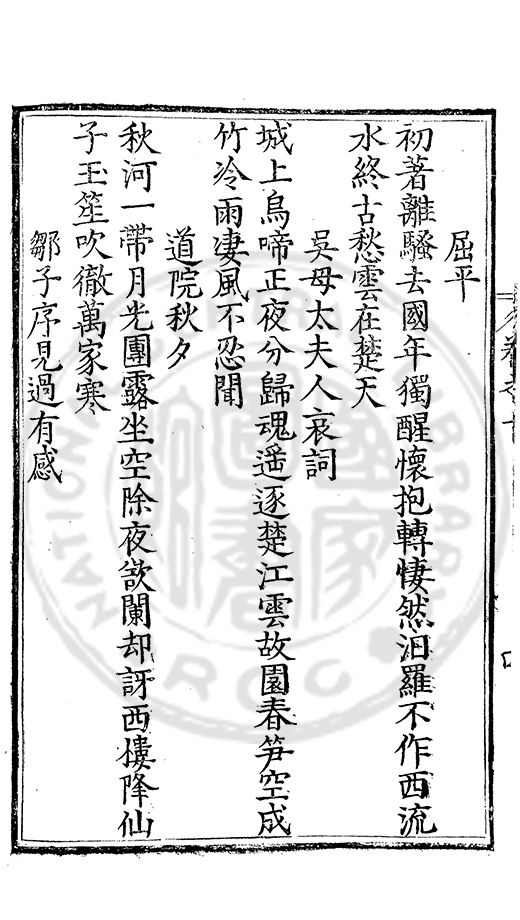 屈平
初著離騷去國年獨醒懷抱轉悽然汨羅不作西流
水終古愁雲在楚天
吳母太夫人哀詞
城上烏啼正夜分歸魂遥逐楚江雲故園春笋空成
竹冷雨凄風不忍聞
道院秋夕
秋河一帶月光團露坐空除夜欲闌却訝西樓降仙
子玉笙吹徹萬家寒
鄒子序見過有感